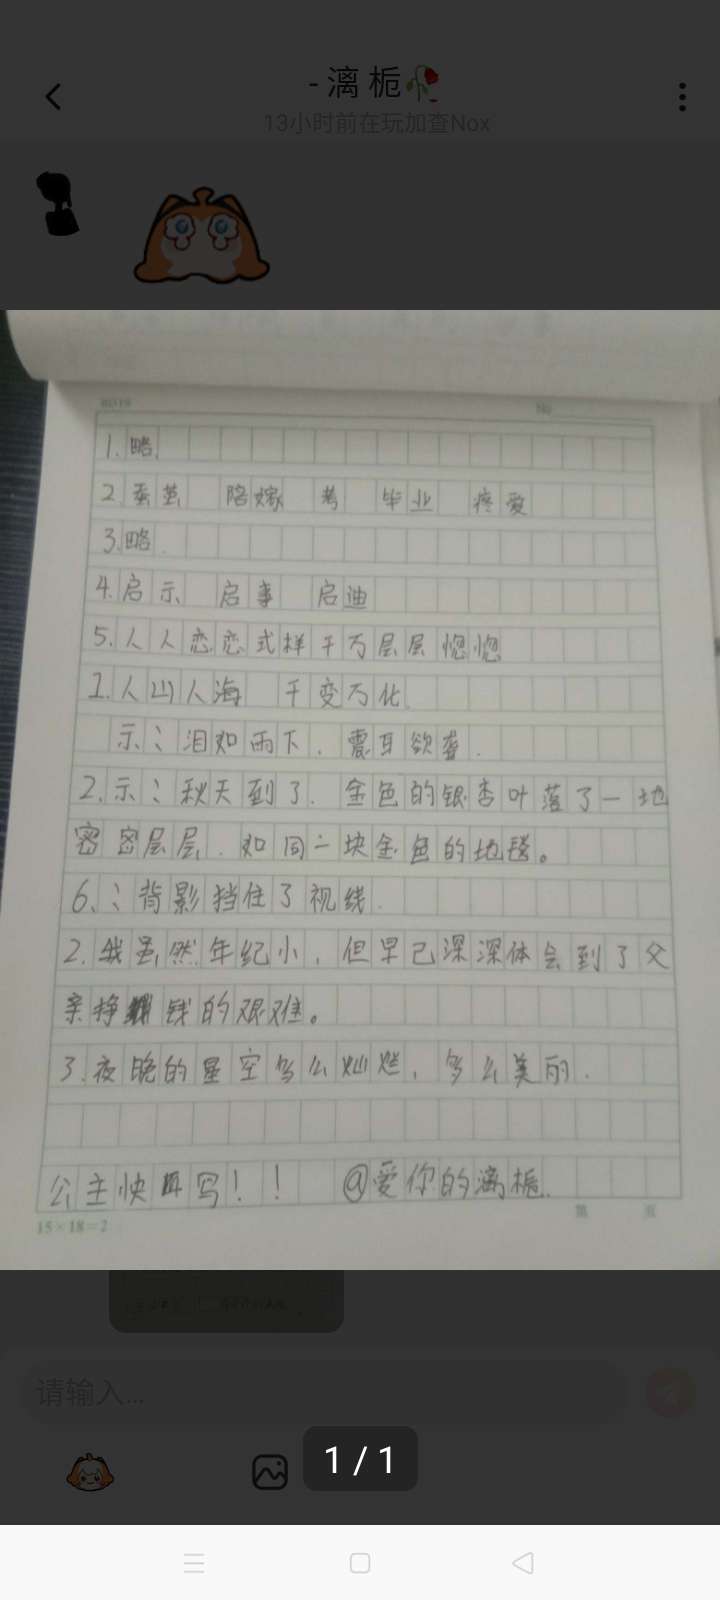 - 漓 栀🥀
13小时前在玩加查Nox
No
1.略.
2.蚕茧 陪嫁 考 毕业 疼爱
3.略.
4.启示 启事 启迪
5.人人恋恋式样千万层层惚惚
1.人山人海 千变万化.
示:泪如雨下.震耳欲聋.
2.示:秋天到了.金色的银杏叶落了一地
密密层层.如同一块金色的地毯。
6.:背影挡住了视线.
2.我虽然年纪小,但早已深深体会到了父
亲挣钱的艰难。
3.夜晚的星空多么灿烂,多么美丽.
公主快写!! @爱你的漓栀.
15×18=2
第 页
请输入...
1 / 1